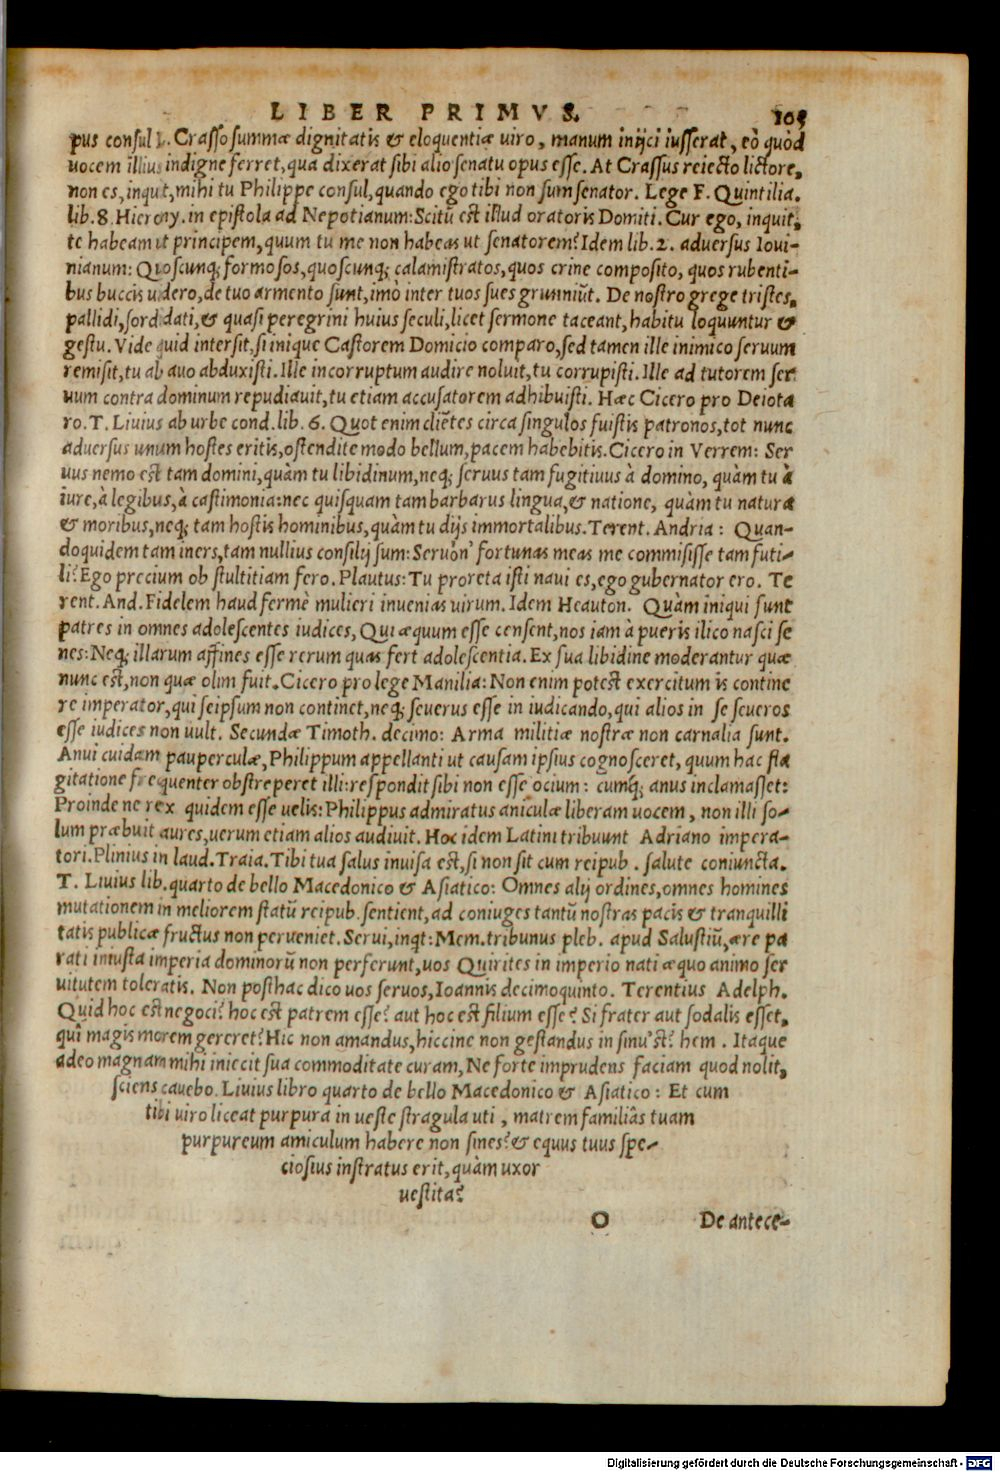 LIBER PRIMVS. 105
pus consul L. Crasso summæ dignitatis & eloquentiæ uiro, manum inijci iusserat, eò quòd
uocem illius indigne ferret, qua dixerat sibi alio senatu opus esse. At Crassus reiecto lictore,
non es, inquit, mihi tu Philippe consul, quando ego tibi non sum senator. Lege F. Quintilia.
lib. 8. Hierony. in epistola ad Nepotianum: Scitū est illud oratoris Domiti. Cur ego, inquit,
te habeam ut principem, quum tu me non habeas ut senatorem? Idem lib. 2. aduersus Ioui-
nianum: Quoscunq; formosos, quoscunq; calamistratos, quos crine composito, quos rubenti-
bus buccis uidero, de tuo armento sunt, imò inter tuos sues grunniūt. De nostro grege tristes,
pallidi, sordidati, & quasi peregrini huius seculi, licet sermone taceant, habitu loquuntur &
gestu. Vide quid intersit, si inique Castorem Domicio comparo, sed tamen ille inimico seruum
remisit, tu ab auo abduxisti. Ille incorruptum audire noluit, tu corrupisti. Ille ad tutorem ser
uum contra dominum repudiauit, tu etiam accusatorem adhibuisti. Hæc Cicero pro Deiota
ro. T. Liuius ab urbe cond. lib. 6. Quot enim cliētes circa singulos fuistis patronos, tot nunc
aduersus unum hostes eritis, ostendite modo bellum, pacem habebitis. Cicero in Verrem: Ser
uus nemo est tam domini, quàm tu libidinum, neq; seruus tam fugitiuus à domino, quàm tu à
iure, à legibus, à castimonia: nec quisquam tam barbarus lingua, & natione, quàm tu natura
& moribus, neq; tam hostis hominibus, quàm tu dijs immortalibus. Terent. Andria: Quan-
doquidem tam iners, tam nullius consilij sum: Seruon' fortunas meas me commisisse tam futi-
li? Ego precium ob stultitiam fero. Plautus: Tu proreta isti naui es, ego gubernator ero. Te
rent. And. Fidelem haud fermè mulieri inuenias uirum. Idem Heauton. Quàm iniqui sunt
patres in omnes adolescentes iudices, Qui æquum esse censent, nos iam à pueris ilico nasci se
nes: Neq; illarum affines esse rerum quas fert adolescentia. Ex sua libidine moderantur quæ
nunc est, non quæ olim fuit. Cicero pro lege Manilia: Non enim potest exercitum is contine
re imperator, qui seipsum non continet, neq; seuerus esse in iudicando, qui alios in se seueros
esse iudices non uult. Secundæ Timoth. decimo: Arma militiæ nostræ non carnalia sunt.
Anui cuidam pauperculæ, Philippum appellanti ut causam ipsius cognosceret, quum hac fla
gitatione frequenter obstreperet illi: respondit sibi non esse ocium: cumq; anus inclamasset:
Proinde ne rex quidem esse uelis: Philippus admiratus aniculæ liberam uocem, non illi so-
lum præbuit aures, uerum etiam alios audiuit. Hoc idem Latini tribuunt Adriano impera-
tori. Plinius in laud. Traia. Tibi tua salus inuisa est, si non sit cum reipub. salute coniuncta.
T. Liuius lib. quarto de bello Macedonico & Asiatico: Omnes alij ordines, omnes homines
mutationem in meliorem statū reipub. sentient, ad coniuges tantū nostras pacis & tranquilli
tatis publicæ fructus non perueniet. Serui, inqt: Mem. tribunus pleb. apud Salustiū, ære pa
rati iniusta imperia dominorū non perferunt, uos Quirites in imperio nati æquo animo ser
uitutem toleratis. Non posthac dico uos seruos, Ioannis decimoquinto. Terentius Adelph.
Quid hoc est negoci? hoc est patrem esse? aut hoc est filium esse? Si frater aut sodalis esset,
qui magis morem gereret? Hic non amandus, hiccine non gestandus in sinu'st? hem. Itaque
adeo magnam mihi iniecit sua commoditate curam, Ne forte imprudens faciam quod nolit,
sciens cauebo. Liuius libro quarto de bello Macedonico & Asiatico: Et cum
tibi uiro liceat purpura in ueste stragula uti, matrem familiâs tuam
purpureum amiculum habere non sines? & equus tuus spe-
ciosius instratus erit, quàm uxor
uestita?
O De antece-
Digitalisierung gefördert durch die Deutsche Forschungsgemeinschaft - DFG